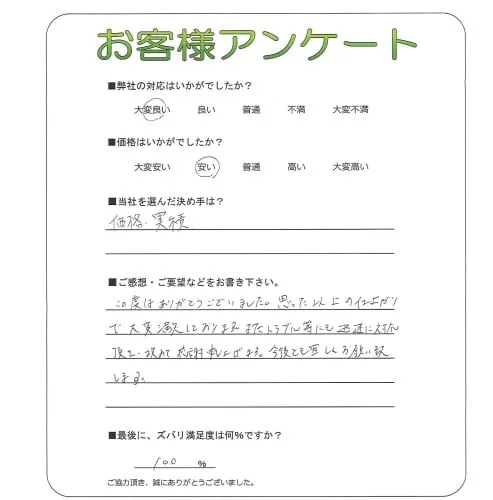 お客様アンケート
■弊社の対応はいかがでしたか？
大変良い 良い 普通 不満 大変不満
■価格はいかがでしたか？
大変安い 安い 普通 高い 大変高い
■当社を選んだ決め手は？
価格・実積
■ご感想・ご要望などをお書き下さい。
この度はありがとうございました。思った以上の仕上がり
で大変満足しております。またトラブル等にも迅速に対応
頂き、改めて感謝申し上げます。今後とも宜しくお願い致
します。
■最後に、ズバリ満足度は何％ですか？
100 ％
ご協力頂き、誠にありがとうございました。